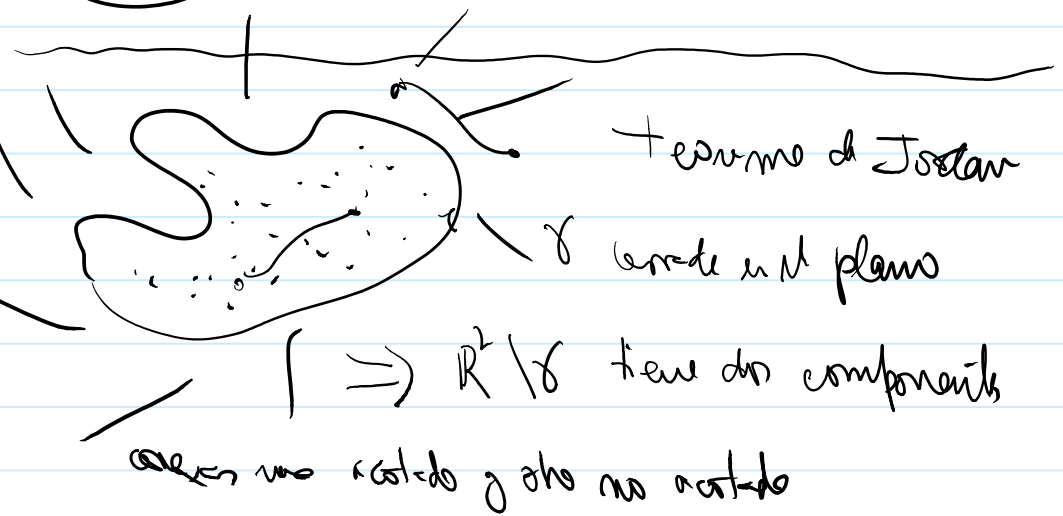 teorema de Jordan
γ cerrada en el plano
⇒ ℝ² \ γ tiene dos componentes
conexas una acotada y otra no acotada